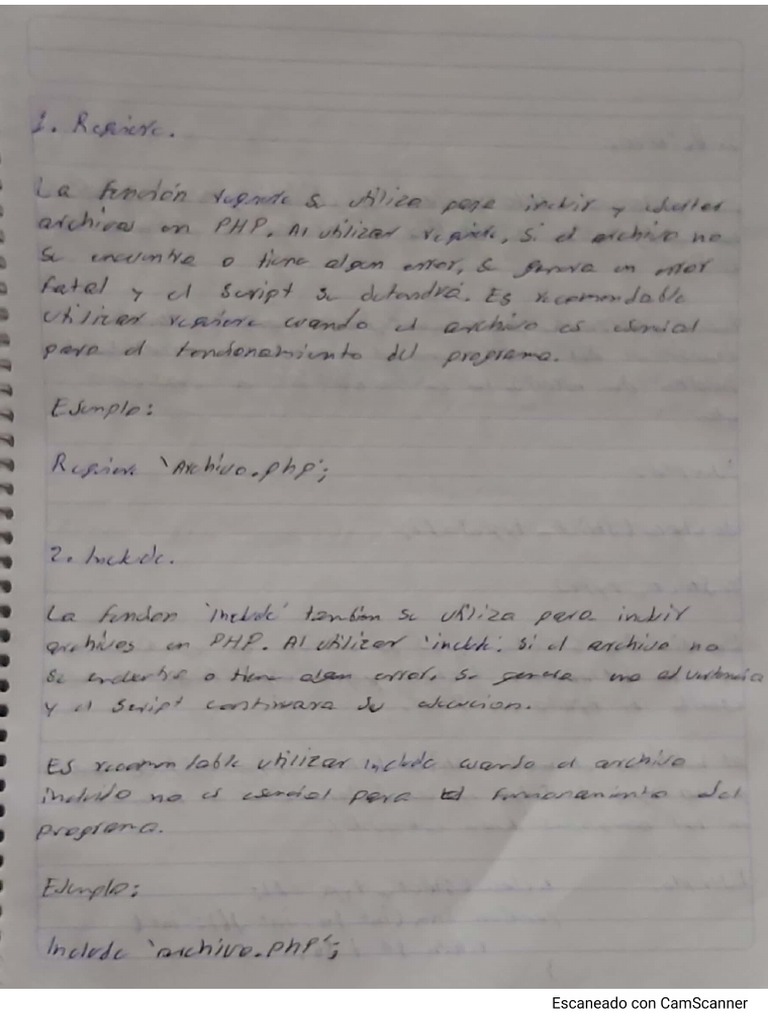 1. Requiere.
La función requiere se utiliza para incluir y ejecutar
archivos en PHP. Al utilizar requiere, si el archivo no
se encuentra o tiene algun error, se genera un error
fatal y el script se detendrá. Es recomendable
utilizar requiere cuando el archivo es esencial
para el funcionamiento del programa.
Ejemplo:
Requiere 'Archivo.php';
2. Include.
La funcion 'include' tambien se utiliza para incluir
archivos en PHP. Al utilizar 'include', si el archivo no
se encuentra o tiene algun error, se genera una advertencia
y el script continuara su ejecucion.
Es recomendable utilizar include cuando el archivo
incluido no es esencial para el funcionamiento del
programa.
Ejemplo:
Include 'archivo.PHP';
Escaneado con CamScanner